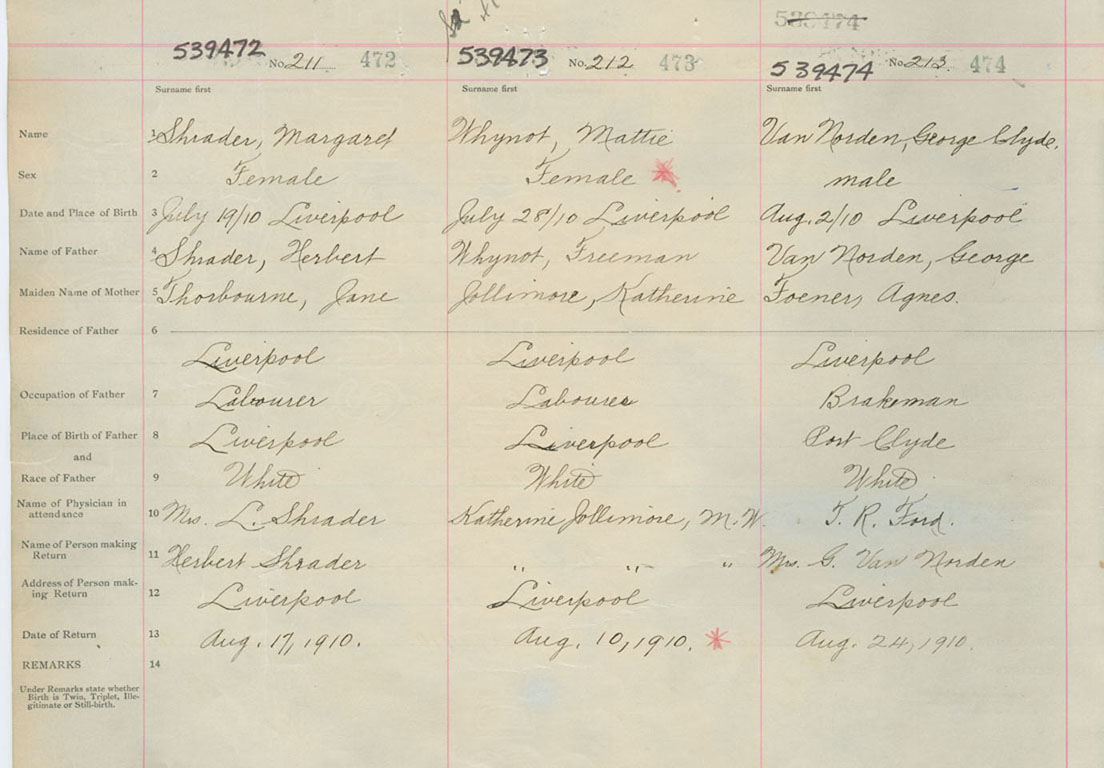 539474
539472 No. 211 472 539473 No. 212 473 539474 No. 213 474
Surname first Surname first Surname first
Name 1 Shrader, Margaret Whynot, Mattie Van Norden, George Clyde.
Sex 2 Female Female male
Date and Place of Birth 3 July 19/10 Liverpool July 28/10 Liverpool Aug. 2/10 Liverpool
Name of Father 4 Shrader, Herbert Whynot, Freeman Van Norden, George
Maiden Name of Mother 5 Thorbourne, Jane Jollimore, Katherine Foener, Agnes.
Residence of Father 6
Liverpool Liverpool Liverpool
Occupation of Father 7 Labourer Labourer Brakeman
Place of Birth of Father 8 Liverpool Liverpool Port Clyde
and
Race of Father 9 White White White
Name of Physician in
attendance 10 Mrs. L. Shrader Katherine Jollimore, M.W. T. R. Ford.
Name of Person making
Return 11 Herbert Shrader " " " Mrs. G. Van Norden
Address of Person mak-
ing Return 12 Liverpool Liverpool Liverpool
Date of Return 13 Aug. 17, 1910. Aug. 10, 1910. Aug. 24, 1910.
REMARKS 14
Under Remarks state whether
Birth is Twin, Triplet, Ille-
gitimate or Still-birth.